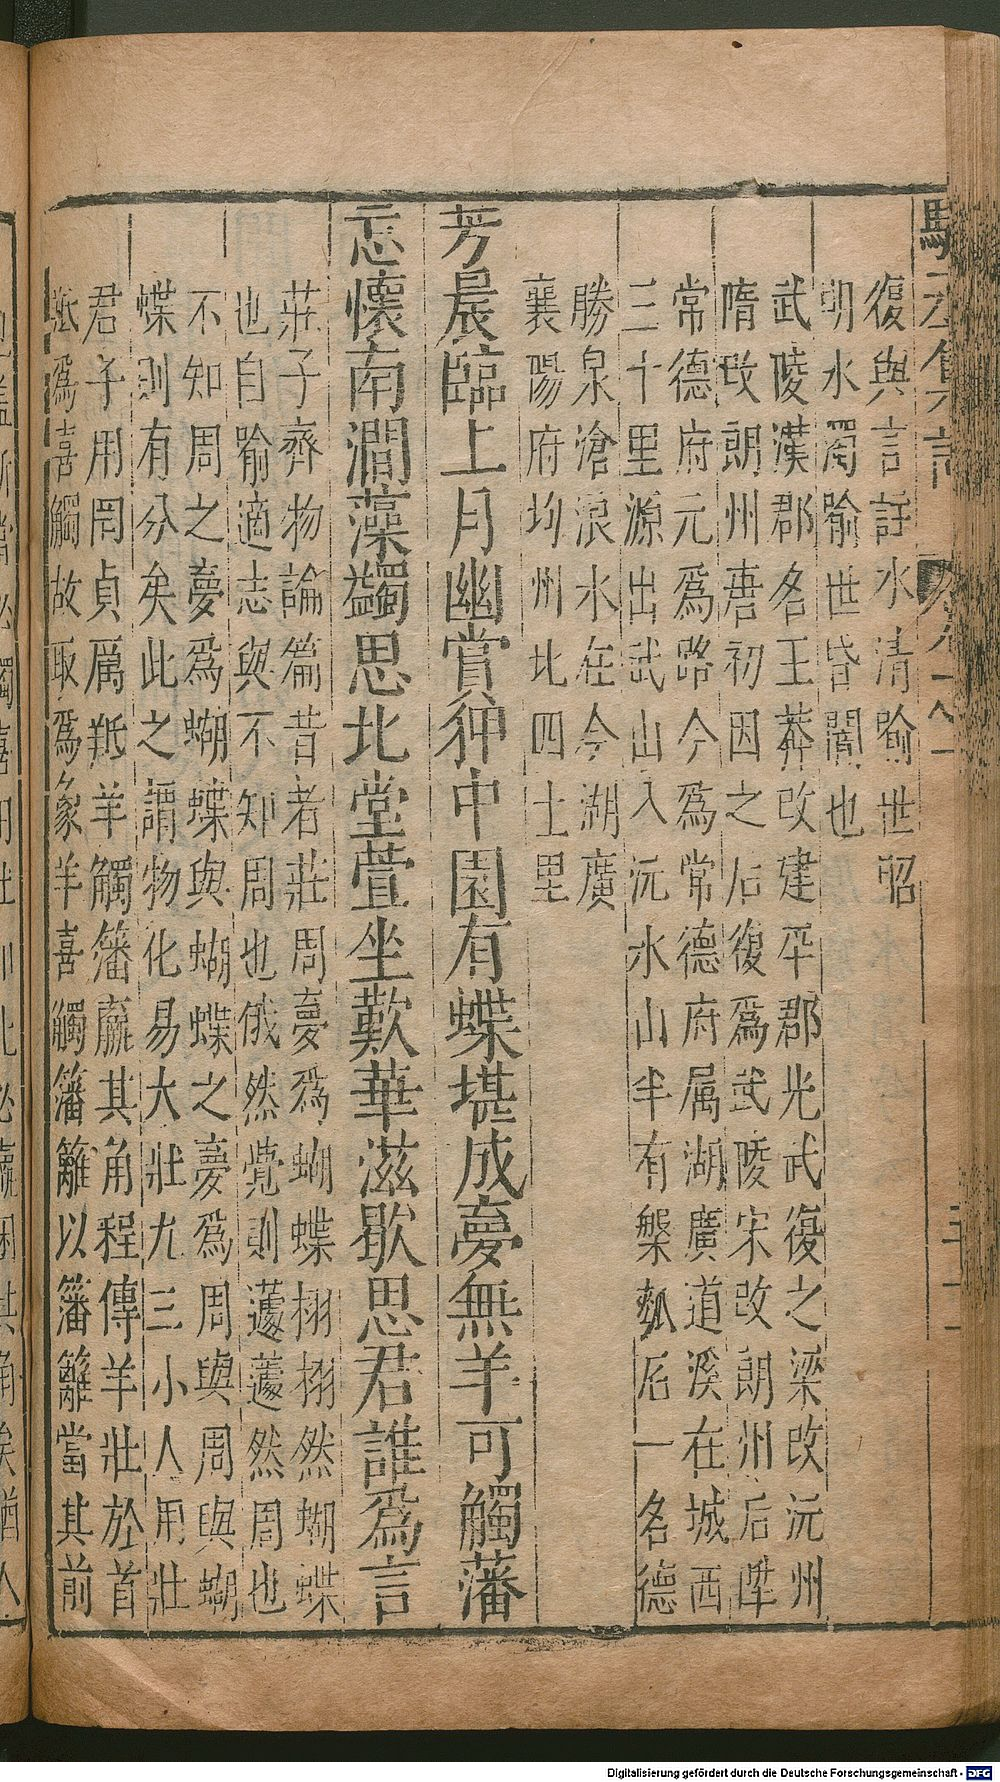 駱丞集
復與言註水清喻世昭
明水濁喻世昏闇也
武陵漢郡名王莽改建平郡光武復之梁改沅州
隋改朗州唐初因之后復爲武陵宋改朗州后陞
常德府元爲路今爲常德府属湖廣道溪在城西
三十里源出武山入沅水山半有槃瓠石一名德
勝泉滄浪水在今湖廣
襄陽府均州北四士里
芳晨臨上月幽賞狎中園有蝶堪成夢無羊可觸藩
忘懷南澗藻蠲思北堂萱坐歎華滋歇思君誰爲言
莊子齊物論篇昔者莊周夢爲蝴蝶栩栩然蝴蝶
也自喻適志與不知周也俄然覺則蘧蘧然周也
不知周之夢爲蝴蝶與蝴蝶之夢爲周與周與蝴
蝶則有分矣此之謂物化易大壯九三小人用壯
君子用罔貞厲羝羊觸籓羸其角程傳羊壯於首
羝爲喜觸故取爲象羊喜觸籓籬以籓籬當其前
Digitalisierung gefördert durch die Deutsche Forschungsgemeinschaft - DFG